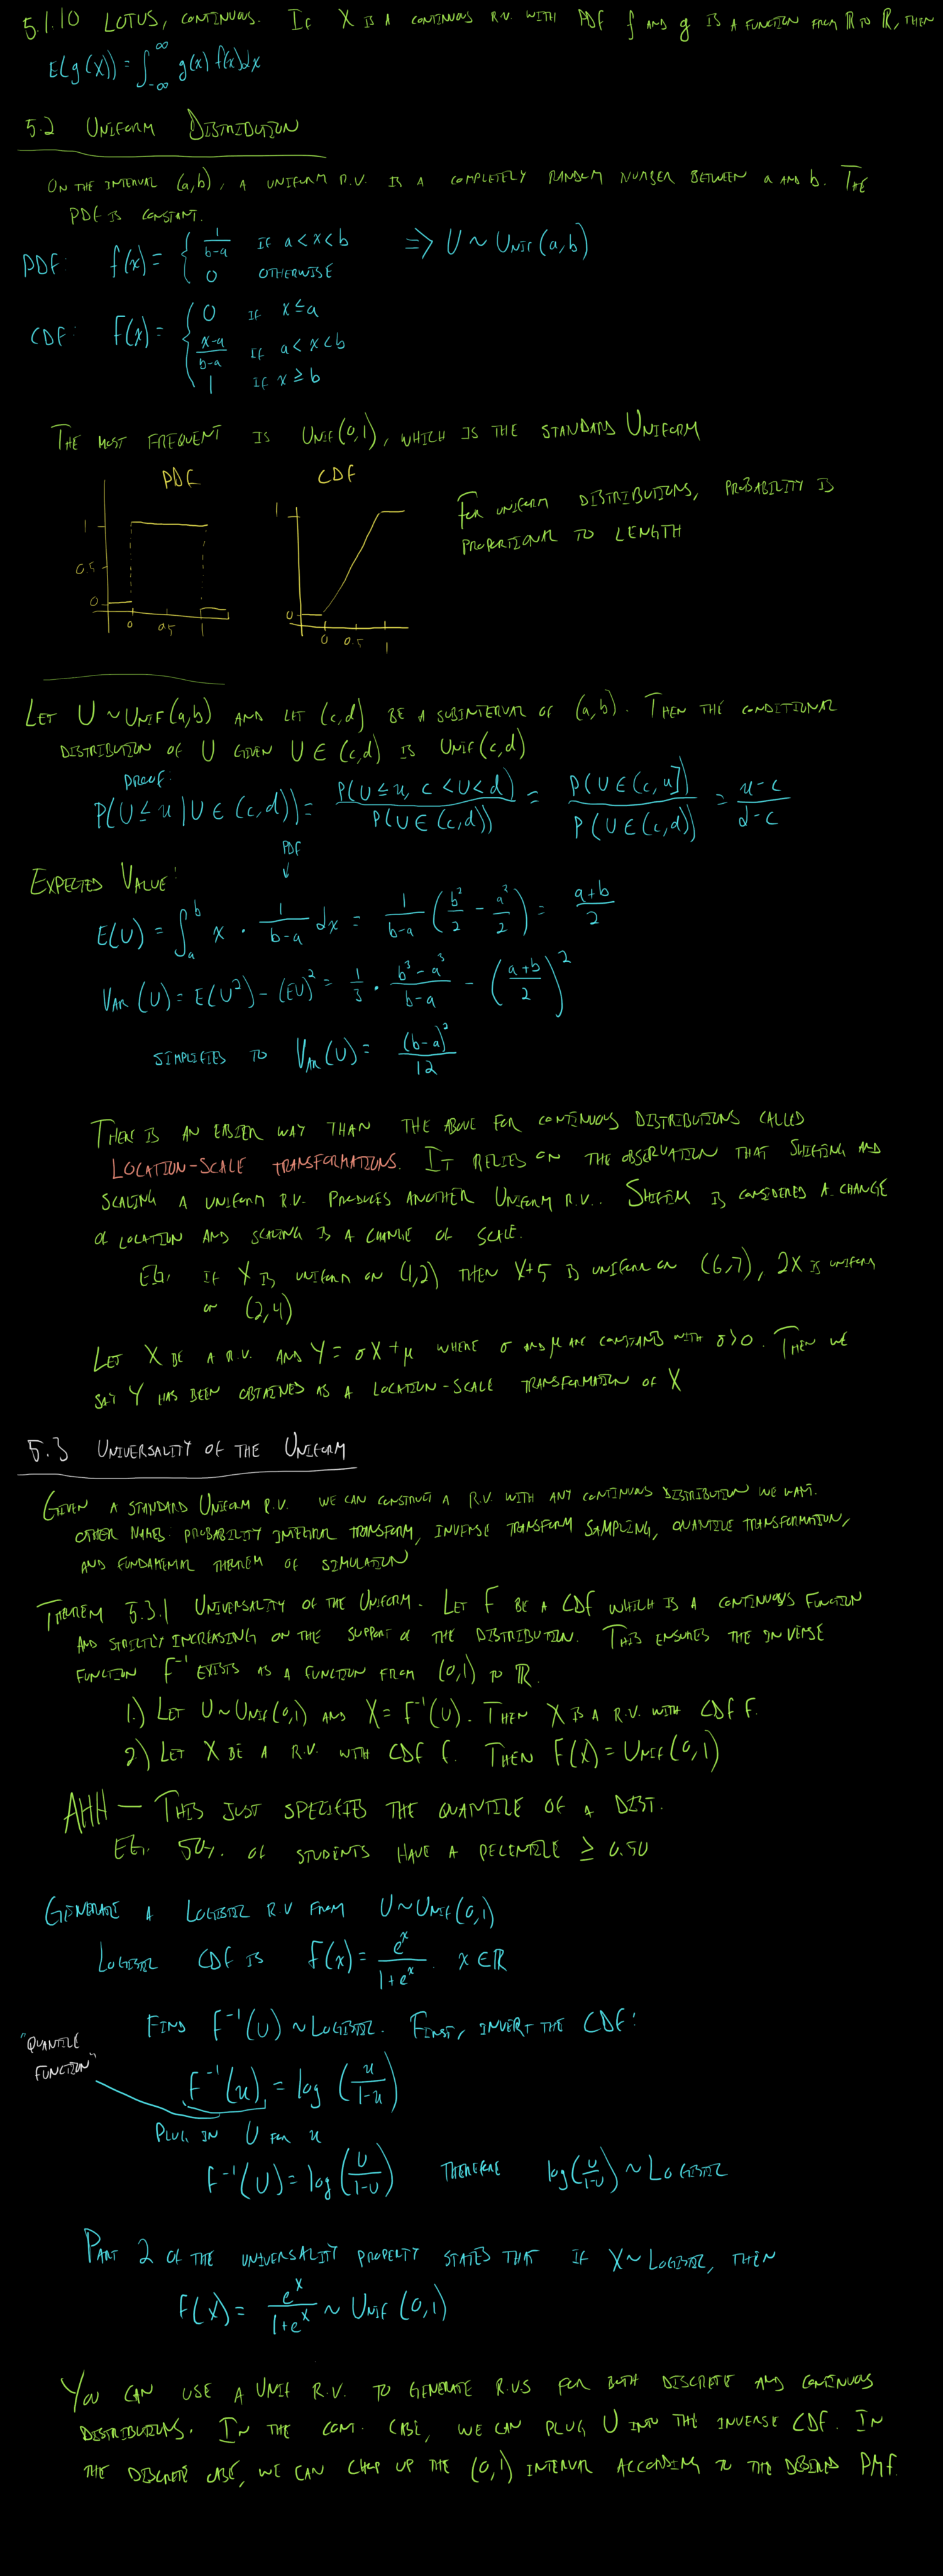 5.1.10 LOTUS, CONTINUOUS. IF X IS A CONTINUOUS R.V. WITH PDF f AND g IS A FUNCTION FROM ℝ TO ℝ, THEN
E(g(X)) = ∫_{-∞}^{∞} g(x) f(x) dx
5.2 UNIFORM DISTRIBUTION
ON THE INTERVAL (a,b), A UNIFORM R.V. IS A COMPLETELY RANDOM NUMBER BETWEEN a AND b. THE
PDF IS CONSTANT.
PDF: f(x) = { 1/(b-a) IF a < x < b ⇒ U ~ UNIF(a,b)
0 OTHERWISE
CDF: F(x) = { 0 IF x ≤ a
(x-a)/(b-a) IF a < x < b
1 IF x ≥ b
THE MOST FREQUENT IS UNIF(0,1), WHICH IS THE STANDARD UNIFORM
PDF CDF
1 0.5 0 0 0.5 1
1 0 0 0.5 1
FOR UNIFORM DISTRIBUTIONS, PROBABILITY IS
PROPORTIONAL TO LENGTH
LET U ~ UNIF(a,b) AND LET (c,d) BE A SUBINTERVAL OF (a,b). THEN THE CONDITIONAL
DISTRIBUTION OF U GIVEN U ∈ (c,d) IS UNIF(c,d)
PROOF:
P(U ≤ u | U ∈ (c,d)) = P(U ≤ u, c < U < d) / P(U ∈ (c,d)) = P(U ∈ (c,u]) / P(U ∈ (c,d)) = (u-c)/(d-c)
PDF
↓
EXPECTED VALUE:
E(U) = ∫_a^b x · 1/(b-a) dx = 1/(b-a) (b²/2 - a²/2) = (a+b)/2
VAR(U) = E(U²) - (EU)² = 1/3 · (b³-a³)/(b-a) - ((a+b)/2)²
SIMPLIFIES TO VAR(U) = (b-a)²/12
THERE IS AN EASIER WAY THAN THE ABOVE FOR CONTINUOUS DISTRIBUTIONS CALLED
LOCATION-SCALE TRANSFORMATIONS. IT RELIES ON THE OBSERVATION THAT SHIFTING AND
SCALING A UNIFORM R.V. PRODUCES ANOTHER UNIFORM R.V.. SHIFTING IS CONSIDERED A CHANGE
OF LOCATION AND SCALING IS A CHANGE OF SCALE.
EG. IF X IS UNIFORM ON (1,2) THEN X+5 IS UNIFORM ON (6,7), 2X IS UNIFORM
ON (2,4)
LET X BE A R.V. AND Y = σX + μ WHERE σ AND μ ARE CONSTANTS WITH σ>0. THEN WE
SAY Y HAS BEEN OBTAINED AS A LOCATION-SCALE TRANSFORMATION OF X
5.3 UNIVERSALITY OF THE UNIFORM
GIVEN A STANDARD UNIFORM R.V. WE CAN CONSTRUCT A R.V. WITH ANY CONTINUOUS DISTRIBUTION WE WANT.
OTHER NAMES: PROBABILITY INTEGRAL TRANSFORM, INVERSE TRANSFORM SAMPLING, QUANTILE TRANSFORMATION,
AND FUNDAMENTAL THEOREM OF SIMULATION
THEOREM 5.3.1 UNIVERSALITY OF THE UNIFORM. LET F BE A CDF WHICH IS A CONTINUOUS FUNCTION
AND STRICTLY INCREASING ON THE SUPPORT OF THE DISTRIBUTION. THIS ENSURES THE INVERSE
FUNCTION F⁻¹ EXISTS AS A FUNCTION FROM (0,1) TO ℝ.
1.) LET U ~ UNIF(0,1) AND X = F⁻¹(U). THEN X IS A R.V. WITH CDF F.
2.) LET X BE A R.V. WITH CDF F. THEN F(X) = UNIF(0,1)
AHH — THIS JUST SPECIFIES THE QUANTILE OF A DIST.
EG. 50%. OF STUDENTS HAVE A PECENTILE ≥ 0.50
GENERATE A LOGISTIC R.V FROM U ~ UNIF(0,1)
LOGISTIC CDF IS F(x) = e^x/(1+e^x) x ∈ ℝ
FIND F⁻¹(U) ~ LOGISTIC. FIRST, INVERT THE CDF:
"QUANTILE
FUNCTION"
F⁻¹(u) = log (u/(1-u))
PLUG IN U FOR u
F⁻¹(U) = log (U/(1-U)) THEREFORE log(U/(1-U)) ~ LOGISTIC
PART 2 OF THE UNIVERSALITY PROPERTY STATES THAT IF X ~ LOGISTIC, THEN
F(X) = e^X/(1+e^X) ~ UNIF(0,1)
YOU CAN USE A UNIF R.V. TO GENERATE R.V.S FOR BOTH DISCRETE AND CONTINUOUS
DISTRIBUTIONS. IN THE CONT. CASE, WE CAN PLUG U INTO THE INVERSE CDF. IN
THE DISCRETE CASE, WE CAN CHOP UP THE (0,1) INTERVAL ACCORDING TO THE DESIRED PMF.